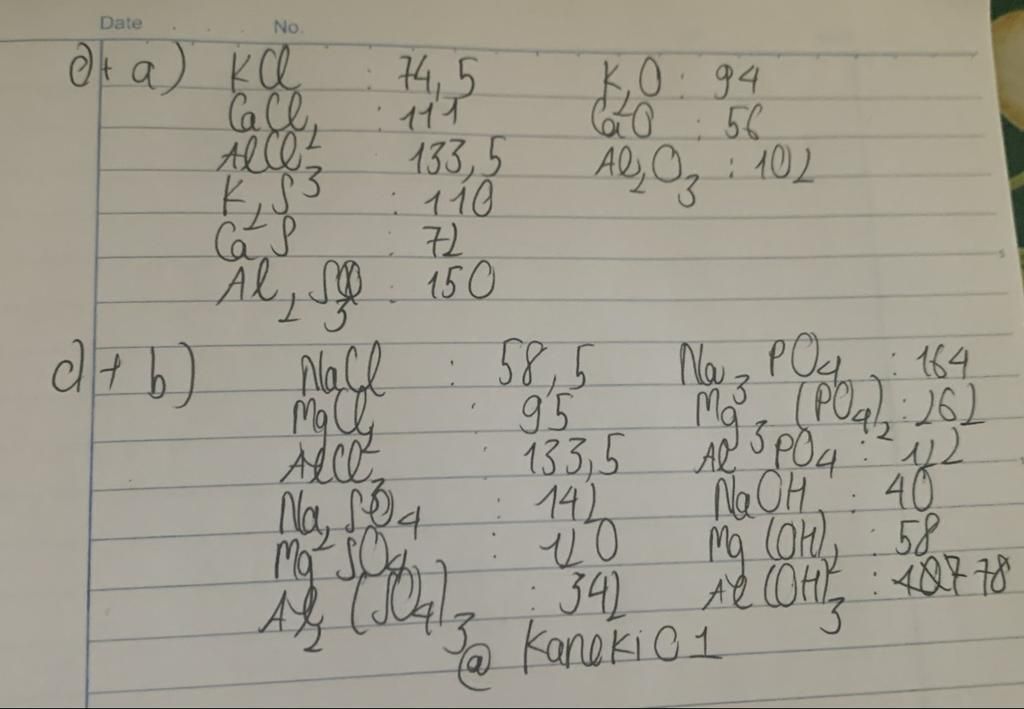 Date No.
d+ a) KCl : 74,5 K₂O : 94
CaCl₂ : 111 CaO : 56
AlCl₃ 133,5 Al₂O₃ : 102
K₂S : 110
CaS : 72
Al₂S₃ : 150
d+ b) NaCl : 58,5 Na₃PO₄ : 164
MgCl₂ : 95 Mg₃(PO₄)₂ : 262
AlCl₃ 133,5 AlPO₄ : 122
Na₂SO₄ : 142 NaOH : 40
MgSO₄ : 120 Mg(OH)₂ : 58
Al₂(SO₄)₃ : 342 Al(OH)₃ : 78
@ Kaneki01